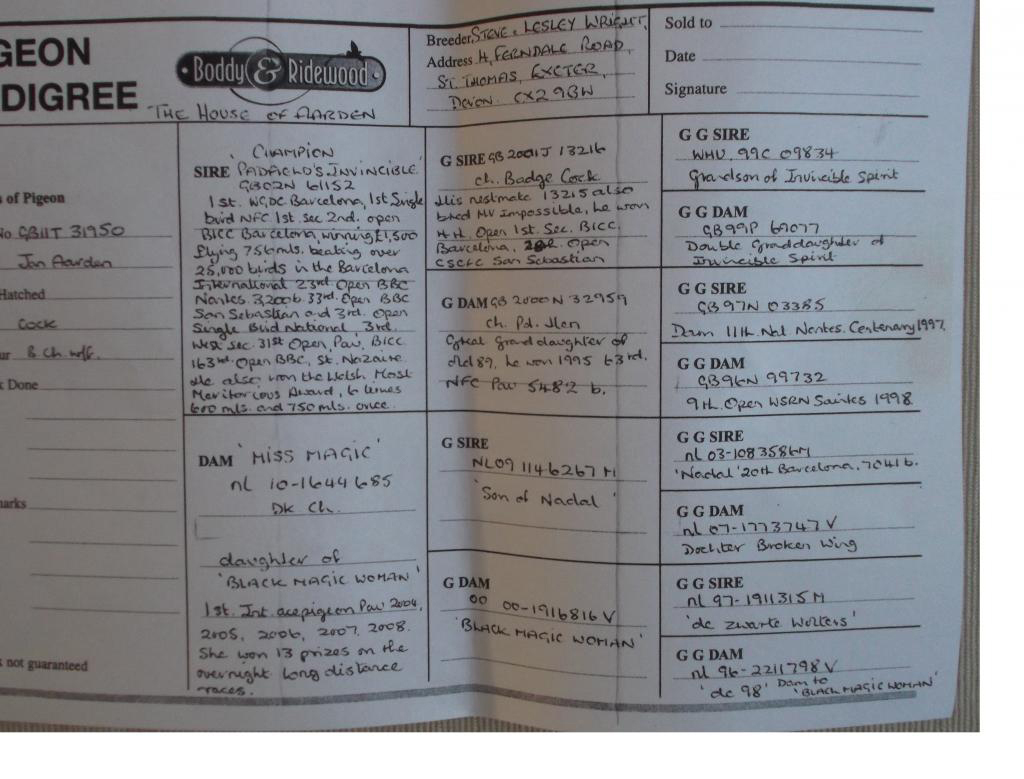 GEON
DIGREE
Boddy & Ridewood
THE HOUSE OF AARDEN
Breeder STEVE & LESLEY WRIGHT,
Address H, FERNDALE ROAD,
ST. THOMAS, EXETER,
DEVON. EX2 9BW
Sold to
Date
Signature
s of Pigeon
No GB11T 31950
Jan Aarden
Hatched
Cock
ur B. Ch. wf.
Done
marks
not guaranteed
'CHAMPION
SIRE PADFIELD'S INVINCIBLE'
GB02N 61152
1st. WGDC Barcelona, 1st Single
bird NFC 1st. sec 2nd. open
BICC Barcelona, winning £1,500
flying 756 mls. beating over
25,000 birds in the Barcelona
International 23rd Open BBC
Nantes. 3,200 b. 33rd. Open BBC
San Sebastian and 3rd. Open
Single Bird National, 3rd.
West sec. 31st Open, Pau, BICC
163rd. Open BBC, St. Nazaire.
He also won the Welsh Most
Meritorious Award, 6 times
600 mls. and 750 mls. once.
DAM 'MISS MAGIC'
nl 10-1644685
DK Ch.
daughter of
'BLACK MAGIC WOMAN'
1st. Int. acepigeon Pau 2004,
2005, 2006, 2007, 2008.
She won 13 prizes on the
overnight long distance
races.
G SIRE GB 2001J 13216
ch. Badge Cock
His nestmate 13215 also
bred MV Impossible, he won
4th. Open 1st. Sec. BICC,
Barcelona, Open
CSCFC San Sebastian
G DAM GB 2000N 32959
ch. Pd. Hen
Great Granddaughter of
Old 89, he won 1995 63rd.
NFC Pau 5482 b.
G SIRE
NL09 1146267 M
'Son of Nadal'
G DAM
00 00-1916816 V
'BLACK MAGIC WOMAN'
G G SIRE
WHU. 99C 09834
Grandson of Invincible Spirit
G G DAM
GB99P 69077
Double Granddaughter of
Invincible Spirit
G G SIRE
GB97N 03385
Dam 11th Nat Nantes. Centenary 1997.
G G DAM
GB96N 99732
9th. Open WSRN Saintes 1998
G G SIRE
nl 03-1083586M
'Nadal' 20th Barcelona. 7041 b.
G G DAM
nl 07-1773747 V
Dochter Broken Wing
G G SIRE
nl 97-1911315 M
'de Zwarte Wolters'
G G DAM
nl 96-2211798 V
'de 98' Dam to 'BLACK MAGIC WOMAN'